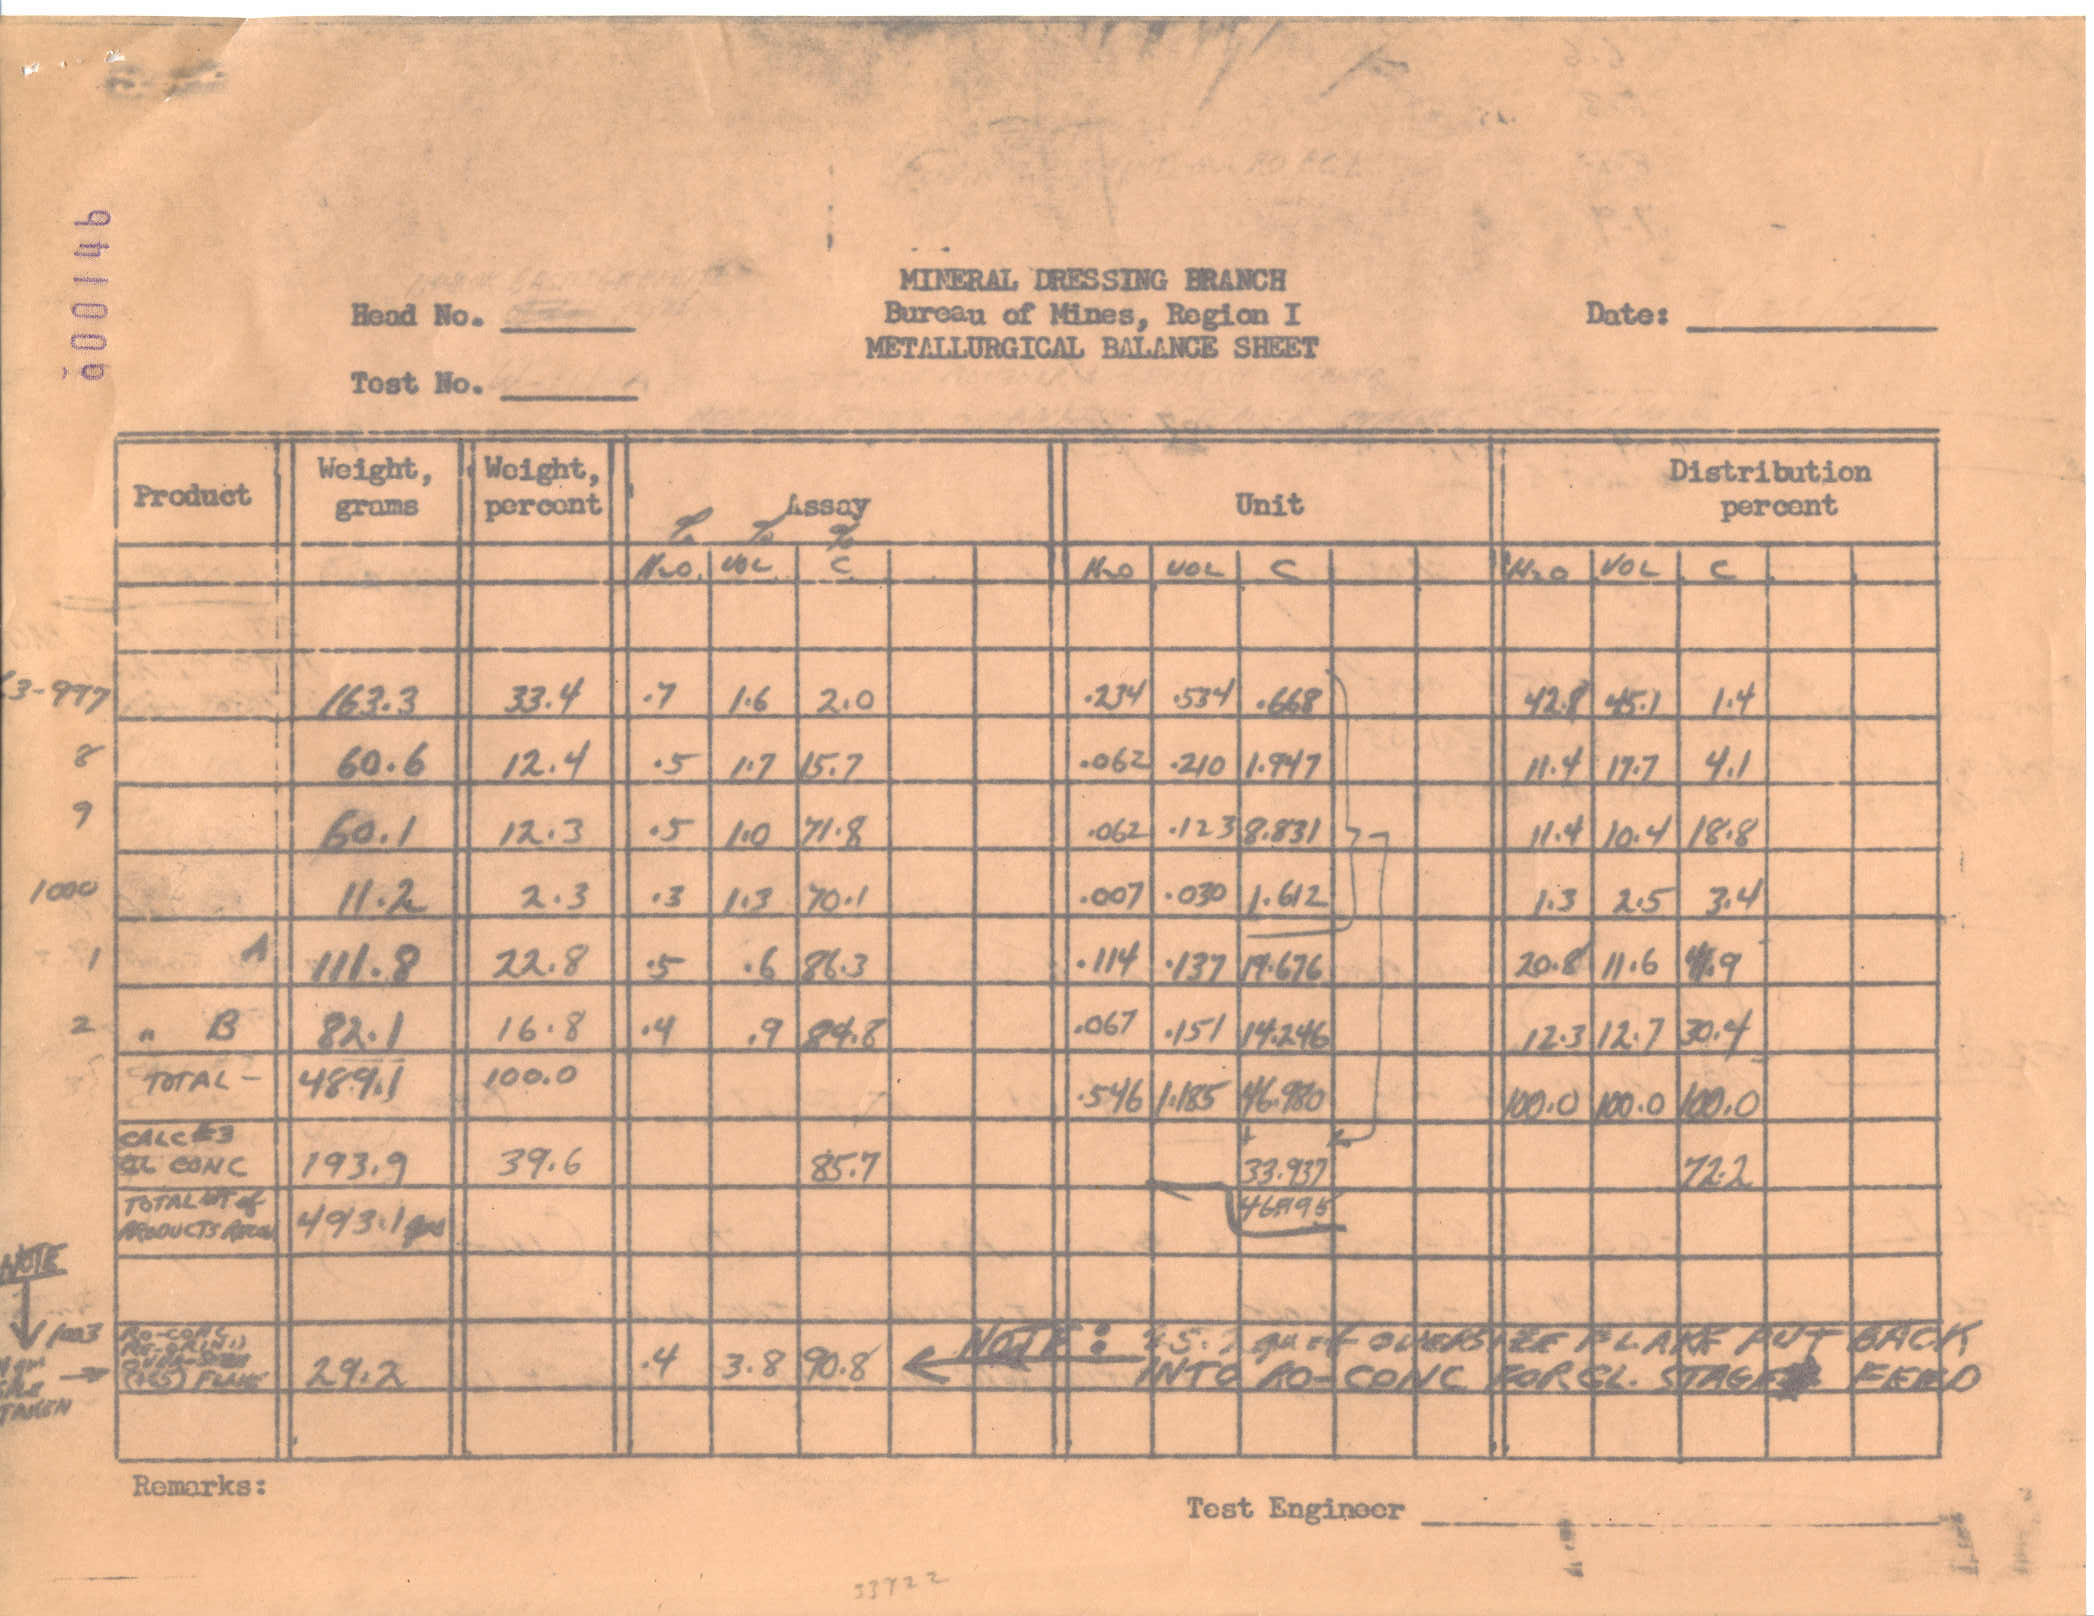 600146
MINERAL DRESSING BRANCH
Head No. Bureau of Mines, Region I Date:
METALLURGICAL BALANCE SHEET
Test No.
Product Weight, grams Weight, percent Assay Unit Distribution percent
% % %
H2O VOL C H2O VOL C H2O VOL C
3-997 163.3 33.4 .7 1.6 2.0 .234 .534 .668 42.8 45.1 1.4
8 60.6 12.4 .5 1.7 15.7 .062 .210 1.947 11.4 17.7 4.1
9 60.1 12.3 .5 1.0 71.8 .062 .123 8.831 11.4 10.4 18.8
1000 11.2 2.3 .3 1.3 70.1 .007 .030 1.612 1.3 2.5 3.4
1 A 111.8 22.8 .5 .6 86.3 .114 .137 19.676 20.8 11.6 41.9
2 " B 82.1 16.8 .4 .9 84.8 .067 .151 14.246 12.3 12.7 30.4
TOTAL - 489.1 100.0 .546 1.185 46.980 100.0 100.0 100.0
CALC #3
CL CONC 193.9 39.6 85.7 33.937 72.2
TOTAL WT of
PRODUCTS 493.1 gm
NOTE
1003 RO-CONC
RE-GRIND
OVER-SIZE
FLAKE 29.2 .4 3.8 90.8
TAKEN
NOTE: gm of OVERSIZE FLAKE PUT BACK
INTO RO-CONC FOR CL. STAGE FEED
Remarks:
Test Engineer
33722